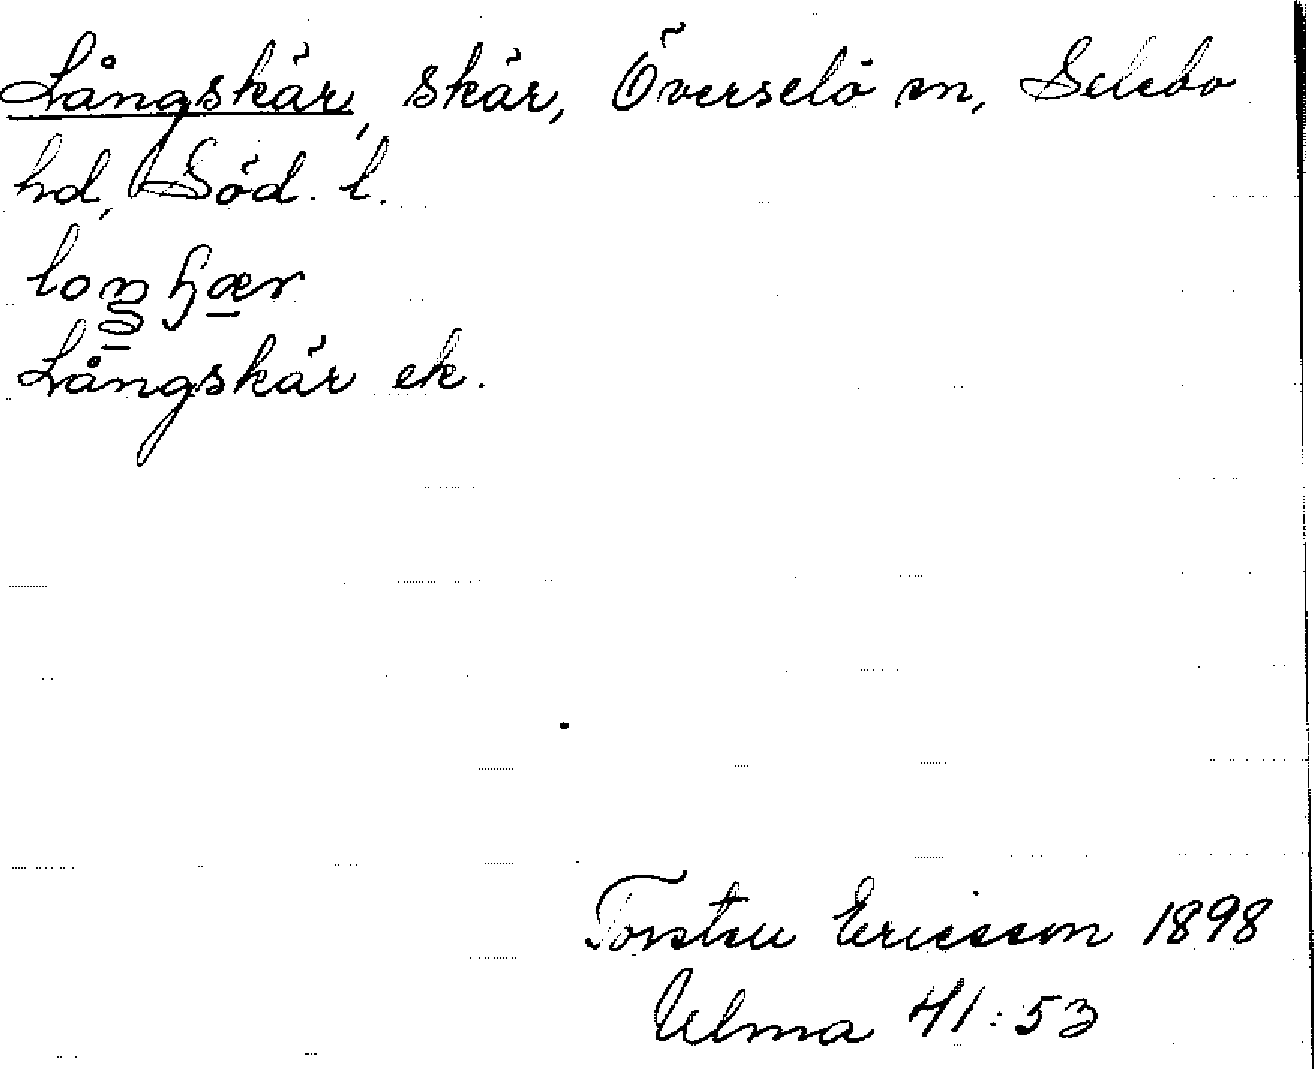 Långskär, skär, Överselö sn, Selebo
hd, Söd. l.
Långskär ek.
Torsten Ericsson 1898
Ulma 41:53